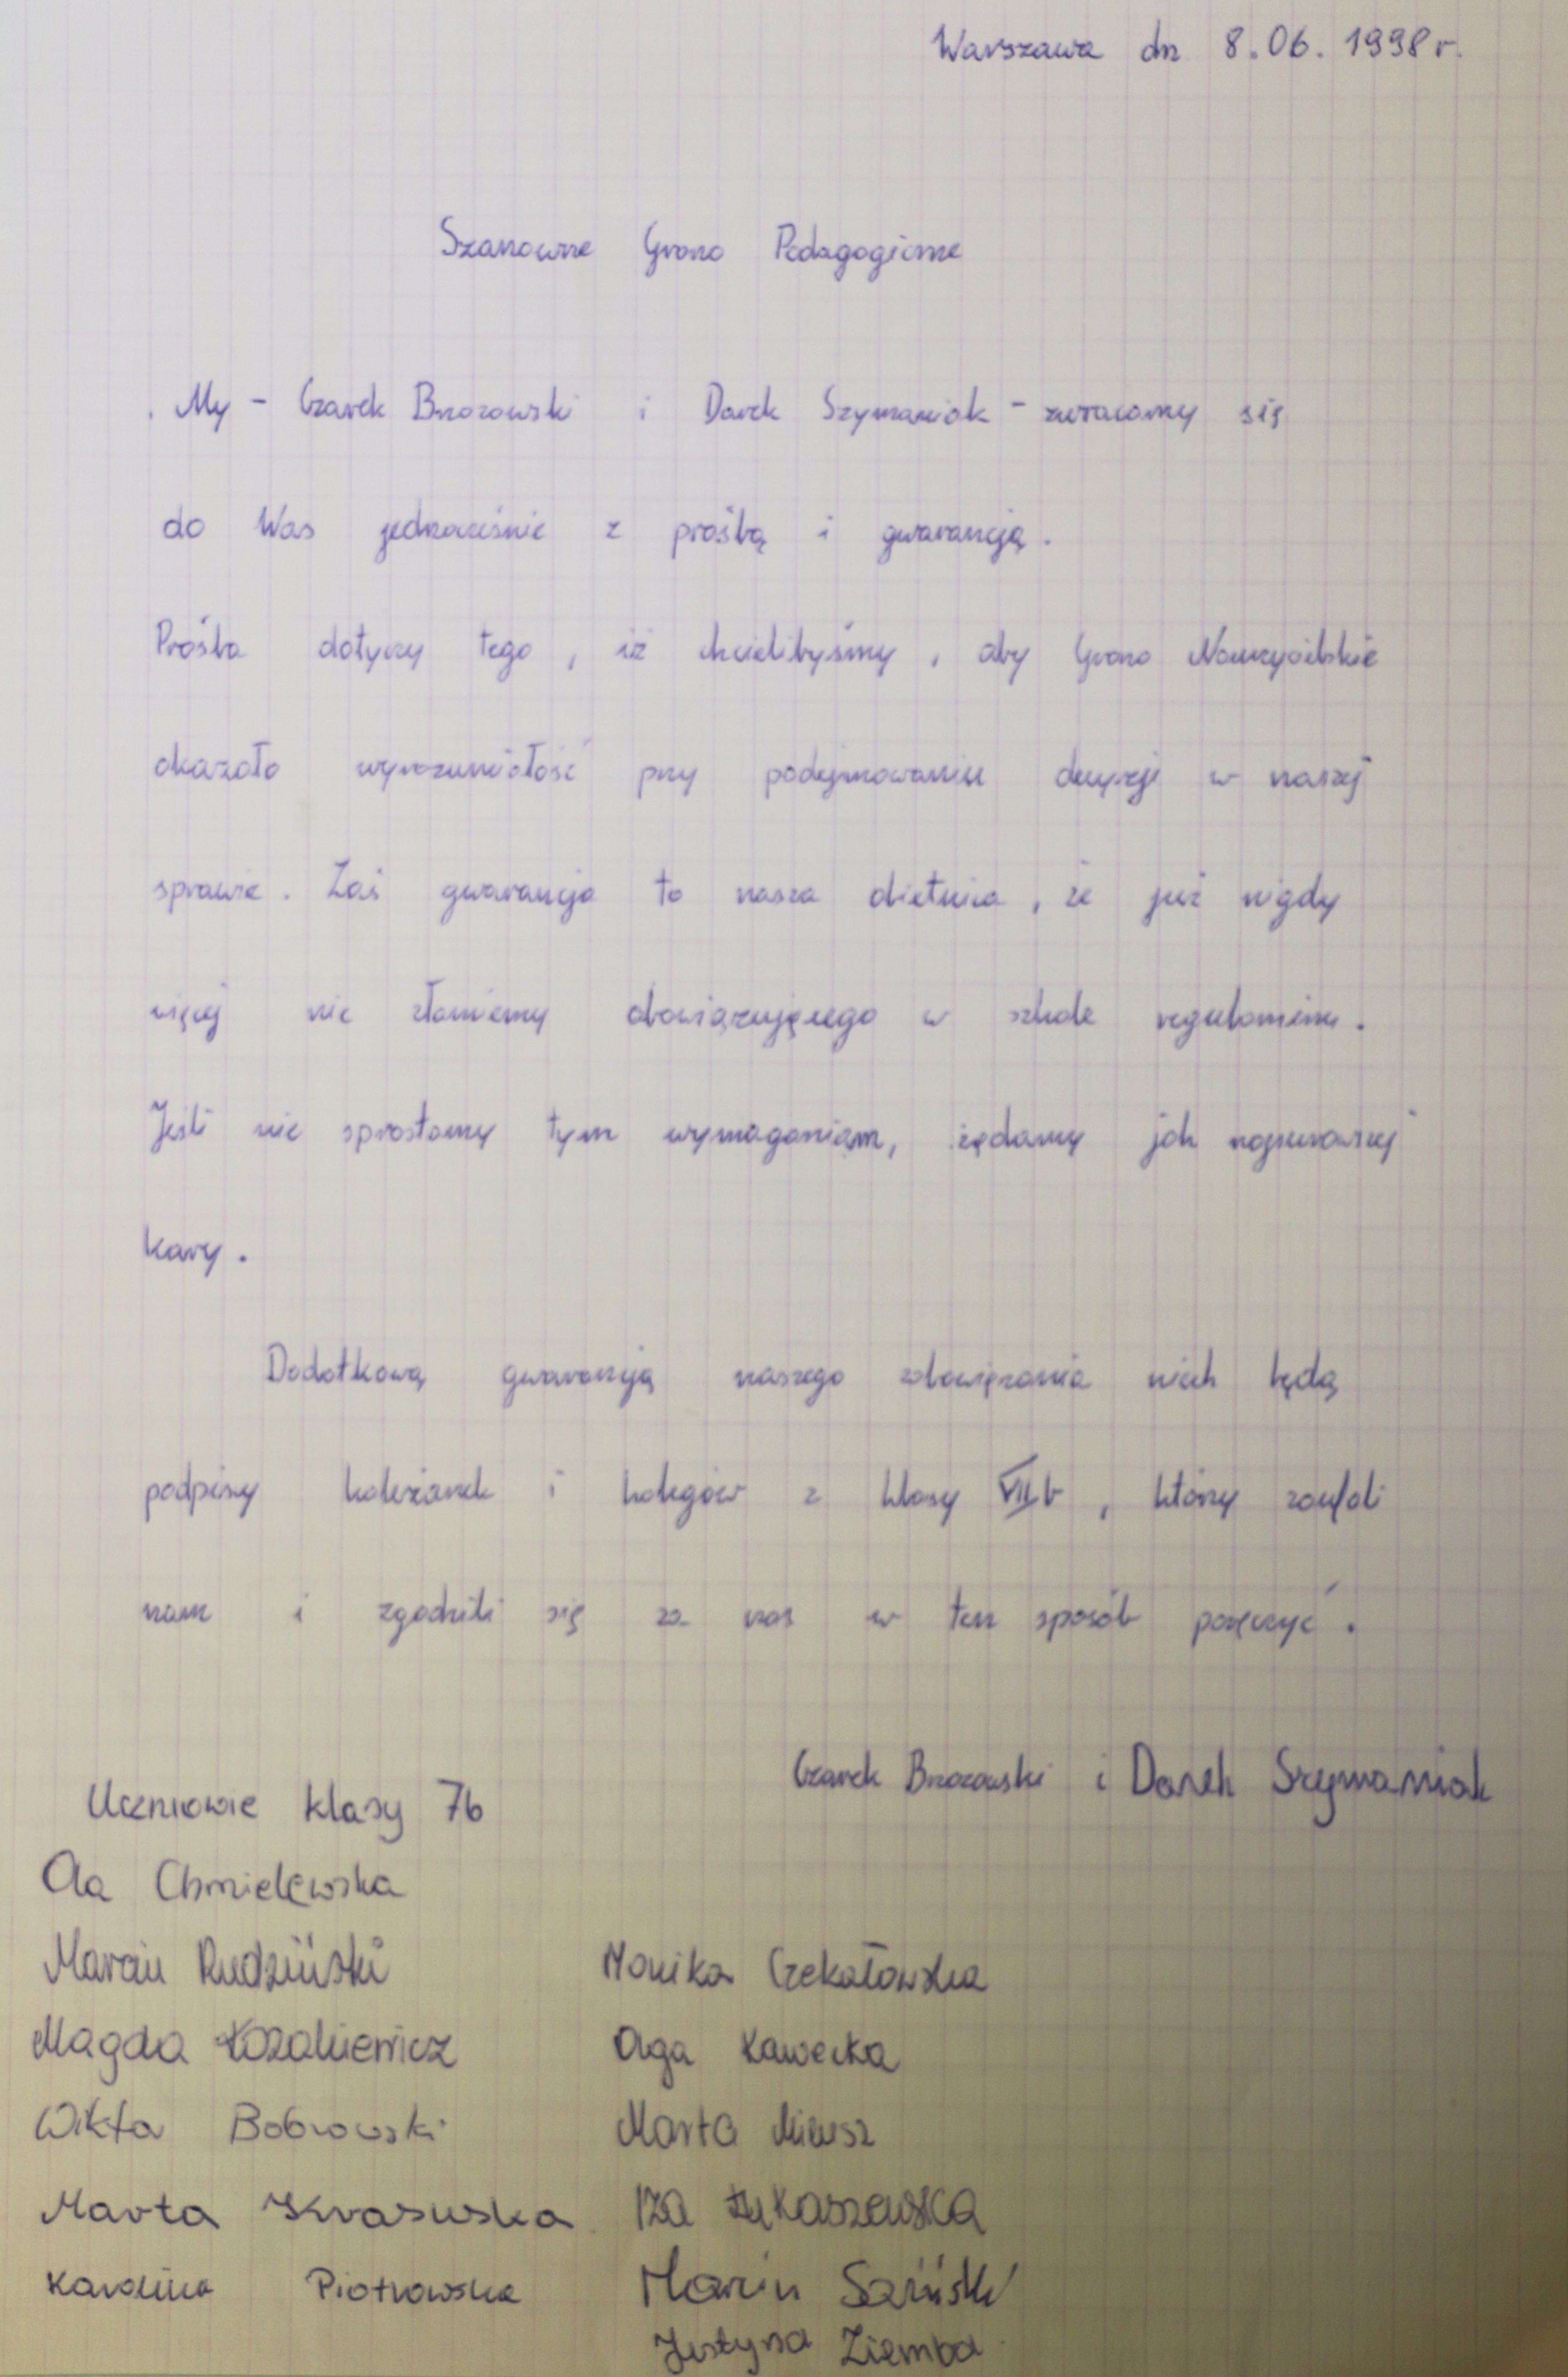 Warszawa dn 8.06.1998 r.
Szanowne Grono Pedagogiczne
My - Czarek Brzozowski i Darek Szymaniak - zwracamy się
do Was jednocześnie z prośbą i gwarancją.
Prośba dotyczy tego, iż chcielibyśmy, aby Grono Nauczycielskie
okazało wyrozumiałość przy podejmowaniu decyzji w naszej
sprawie. Zaś gwarancja to nasza obietnica, że już nigdy
więcej nie złamiemy obowiązującego w szkole regulaminu.
Jeśli nie sprostamy tym wymaganiom, żądamy jak najsurowszej
kary.
Dodatkową gwarancją naszego zobowiązania niech będą
podpisy koleżanek i kolegów z klasy VII b, którzy zaufali
nam i zgodzili się za nas w ten sposób poręczyć.
Czarek Brzozowski i Darek Szymaniak
Uczniowie klasy 7b
Ola Chmielewska
Marcin Rudziński Monika Czekałowska
Magda Łozakiewicz Olga Kawecka
Bobrowski Marta
Marta Krasuska Iza Łukaszewska
Karolina Piotrowska Marcin
Justyna Ziemba